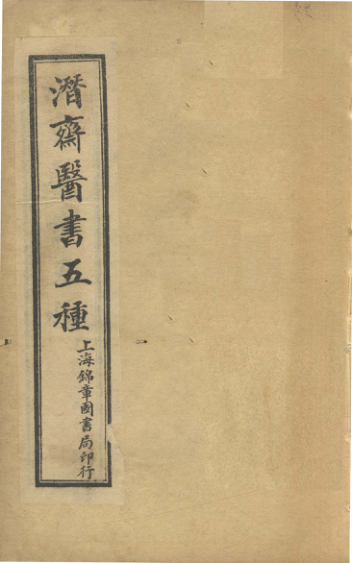 潛齋醫書五種
上海錦章圖書局印行